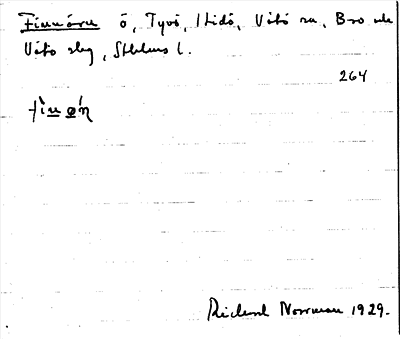 Finnören ö, Tyvö, Htidö, Vätö sn, Bro och
Vätö skg, Sthlms l.
264
Rickard Norrman 1929.